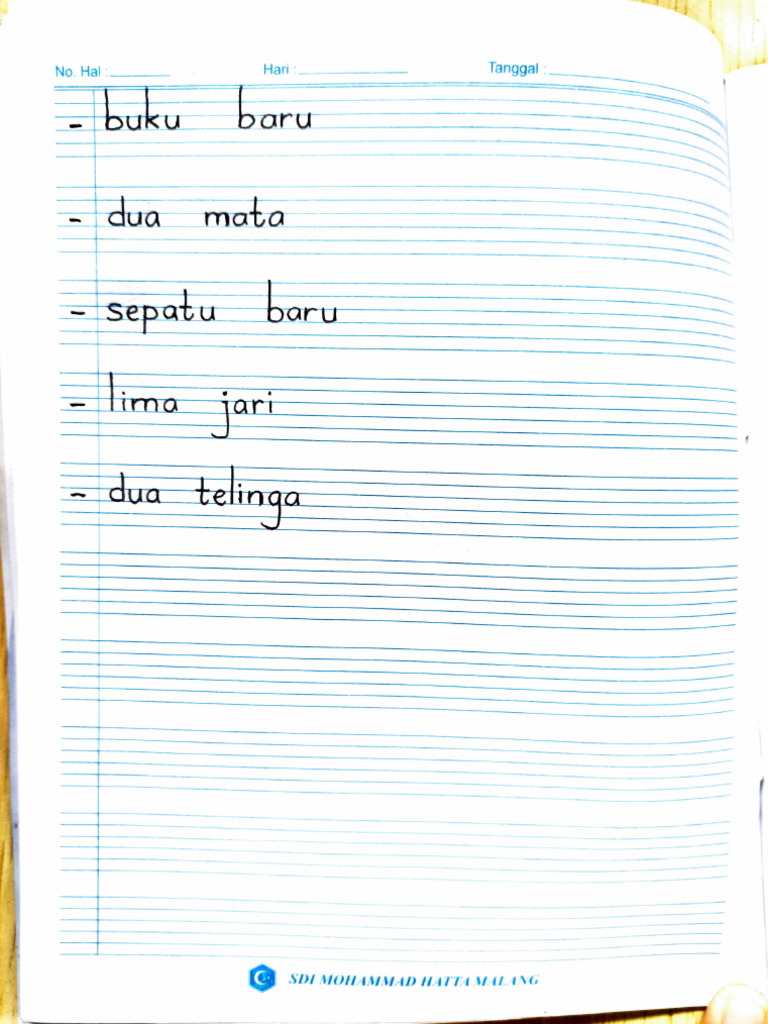 No. Hal : Hari : Tanggal :
- buku baru
- dua mata
- sepatu baru
- lima jari
- dua telinga
SDI MOHAMMAD HATTA MALANG